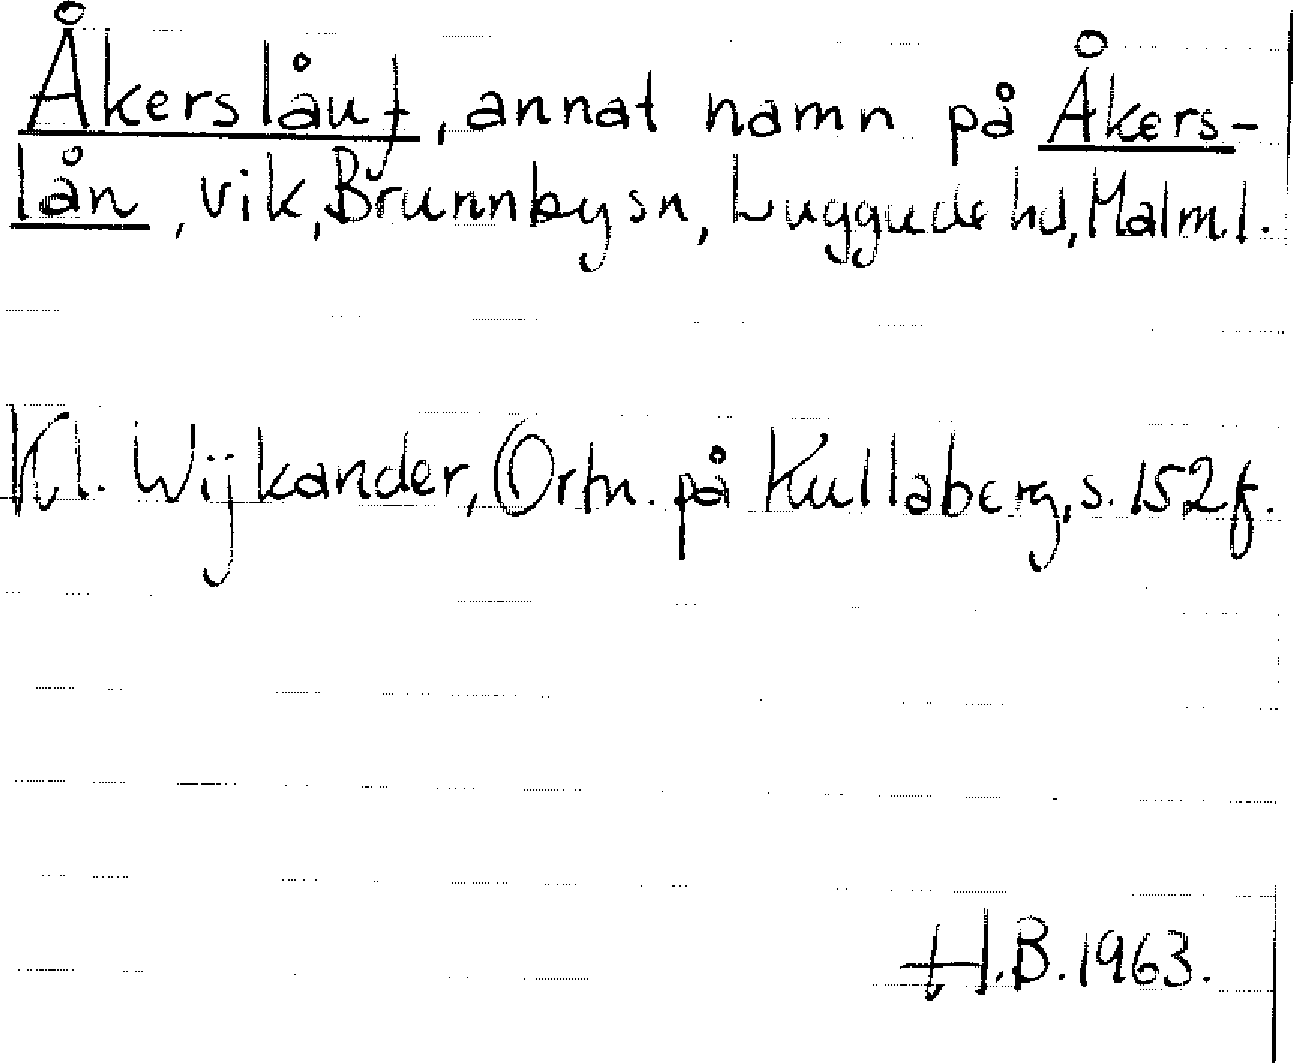 Åkerslåut, annat namn på Åkers-
lån, vik, Brunnby sn, Luggude hd, Malm.l.
Kl. Wijkander, Ortn. på Kullaberg, s. 152 f.
H.B. 1963.